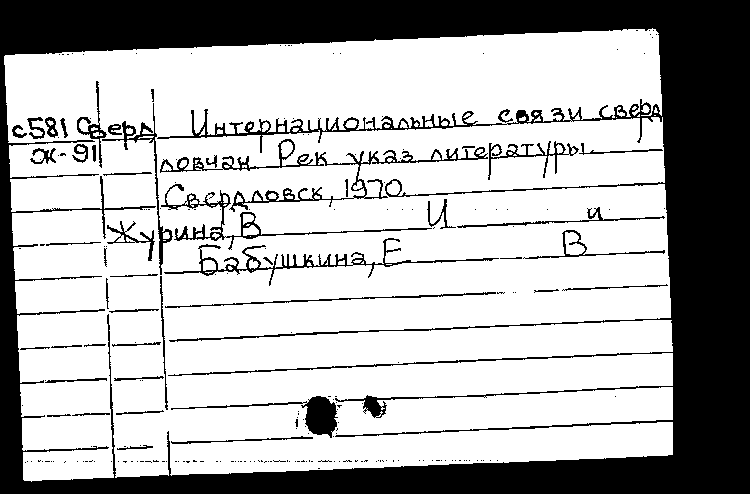 с581 Сверд Интернациональные связи сверд
Ж-91 ловчан Рек указ литературы.
Свердловск, 1970.
Журина, В И и
Бабушкина, Е В